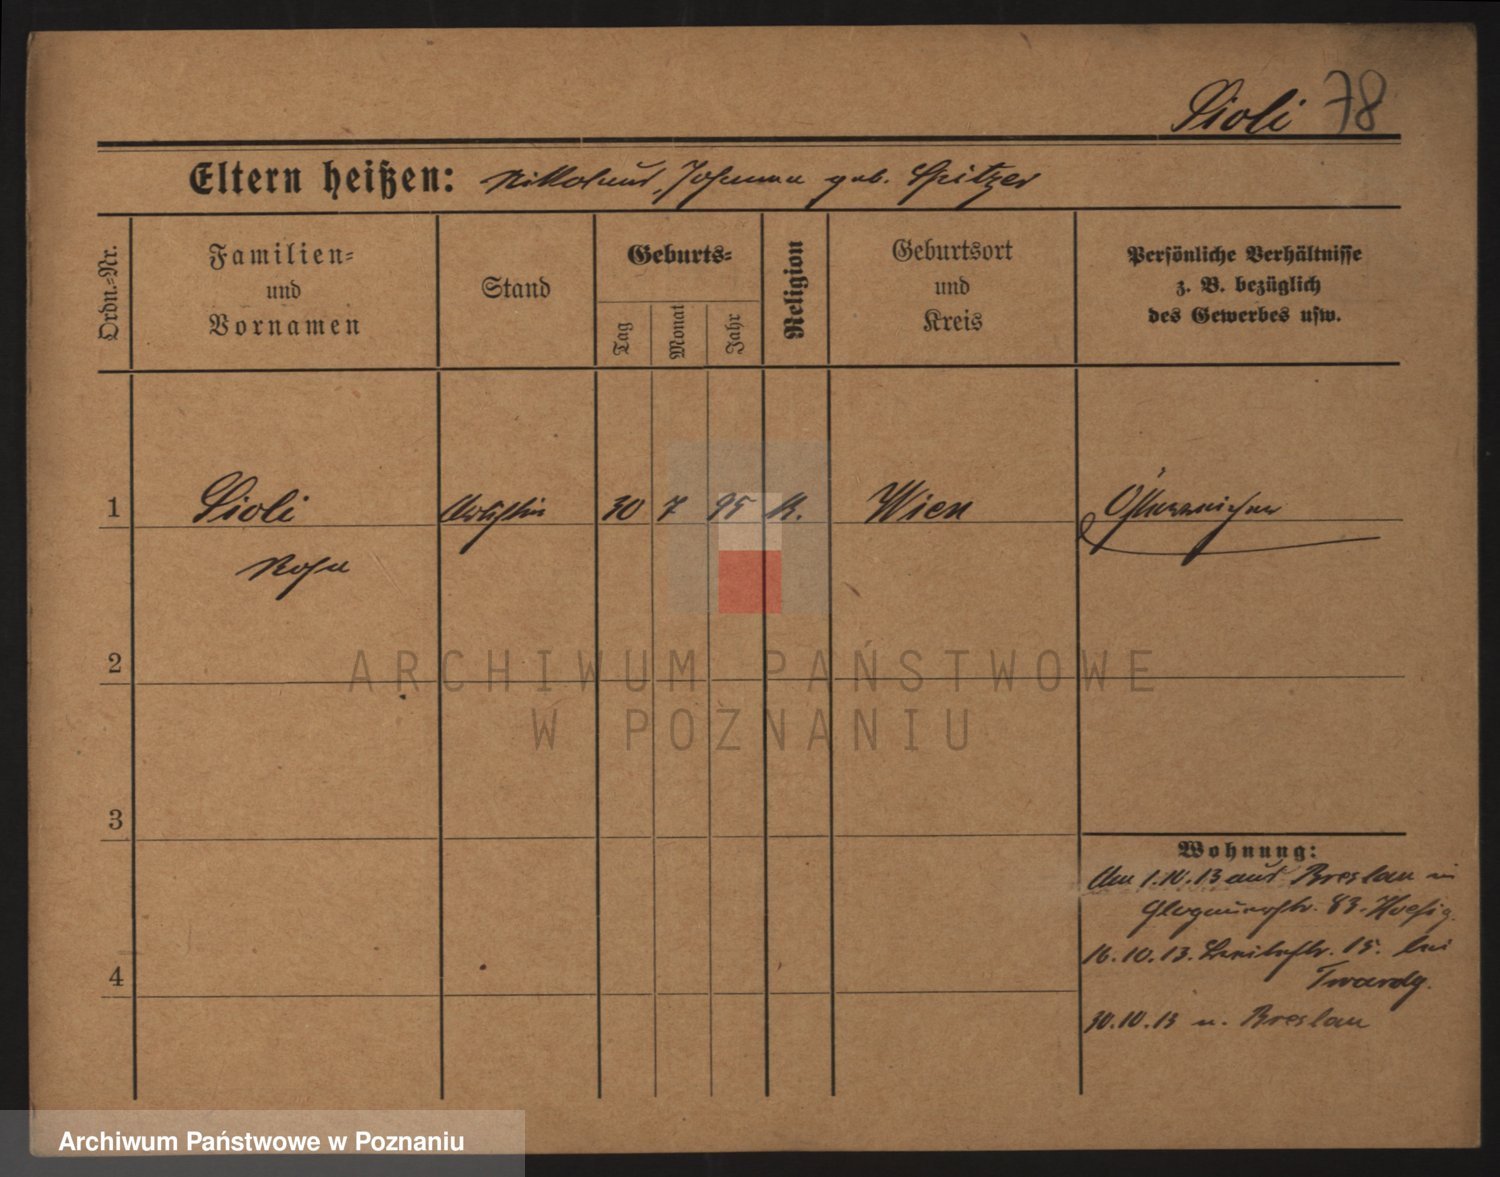 Sioli 78
Eltern heißen: Nikolaus, Johanna geb. Spitzer
Ordn.-Nr.
Familien-
und
Vornamen
Stand
Geburts-
Tag
Monat
Jahr
Religion
Geburtsort
und
Kreis
Persönliche Verhältnisse
z. B. bezüglich
des Gewerbes usw.
1 Sioli Artistin 30 7 95 K. Wien Österreicher
Rosa
2
ARCHIWUM PAŃSTWOWE
W POZNANIU
3
Wohnung:
Am 1.10.13 aus Breslau in
Glogauerstr. 83.
4
16.10.13. 15. bei
Twardy.
30.10.13 n. Breslau
Archiwum Państwowe w Poznaniu